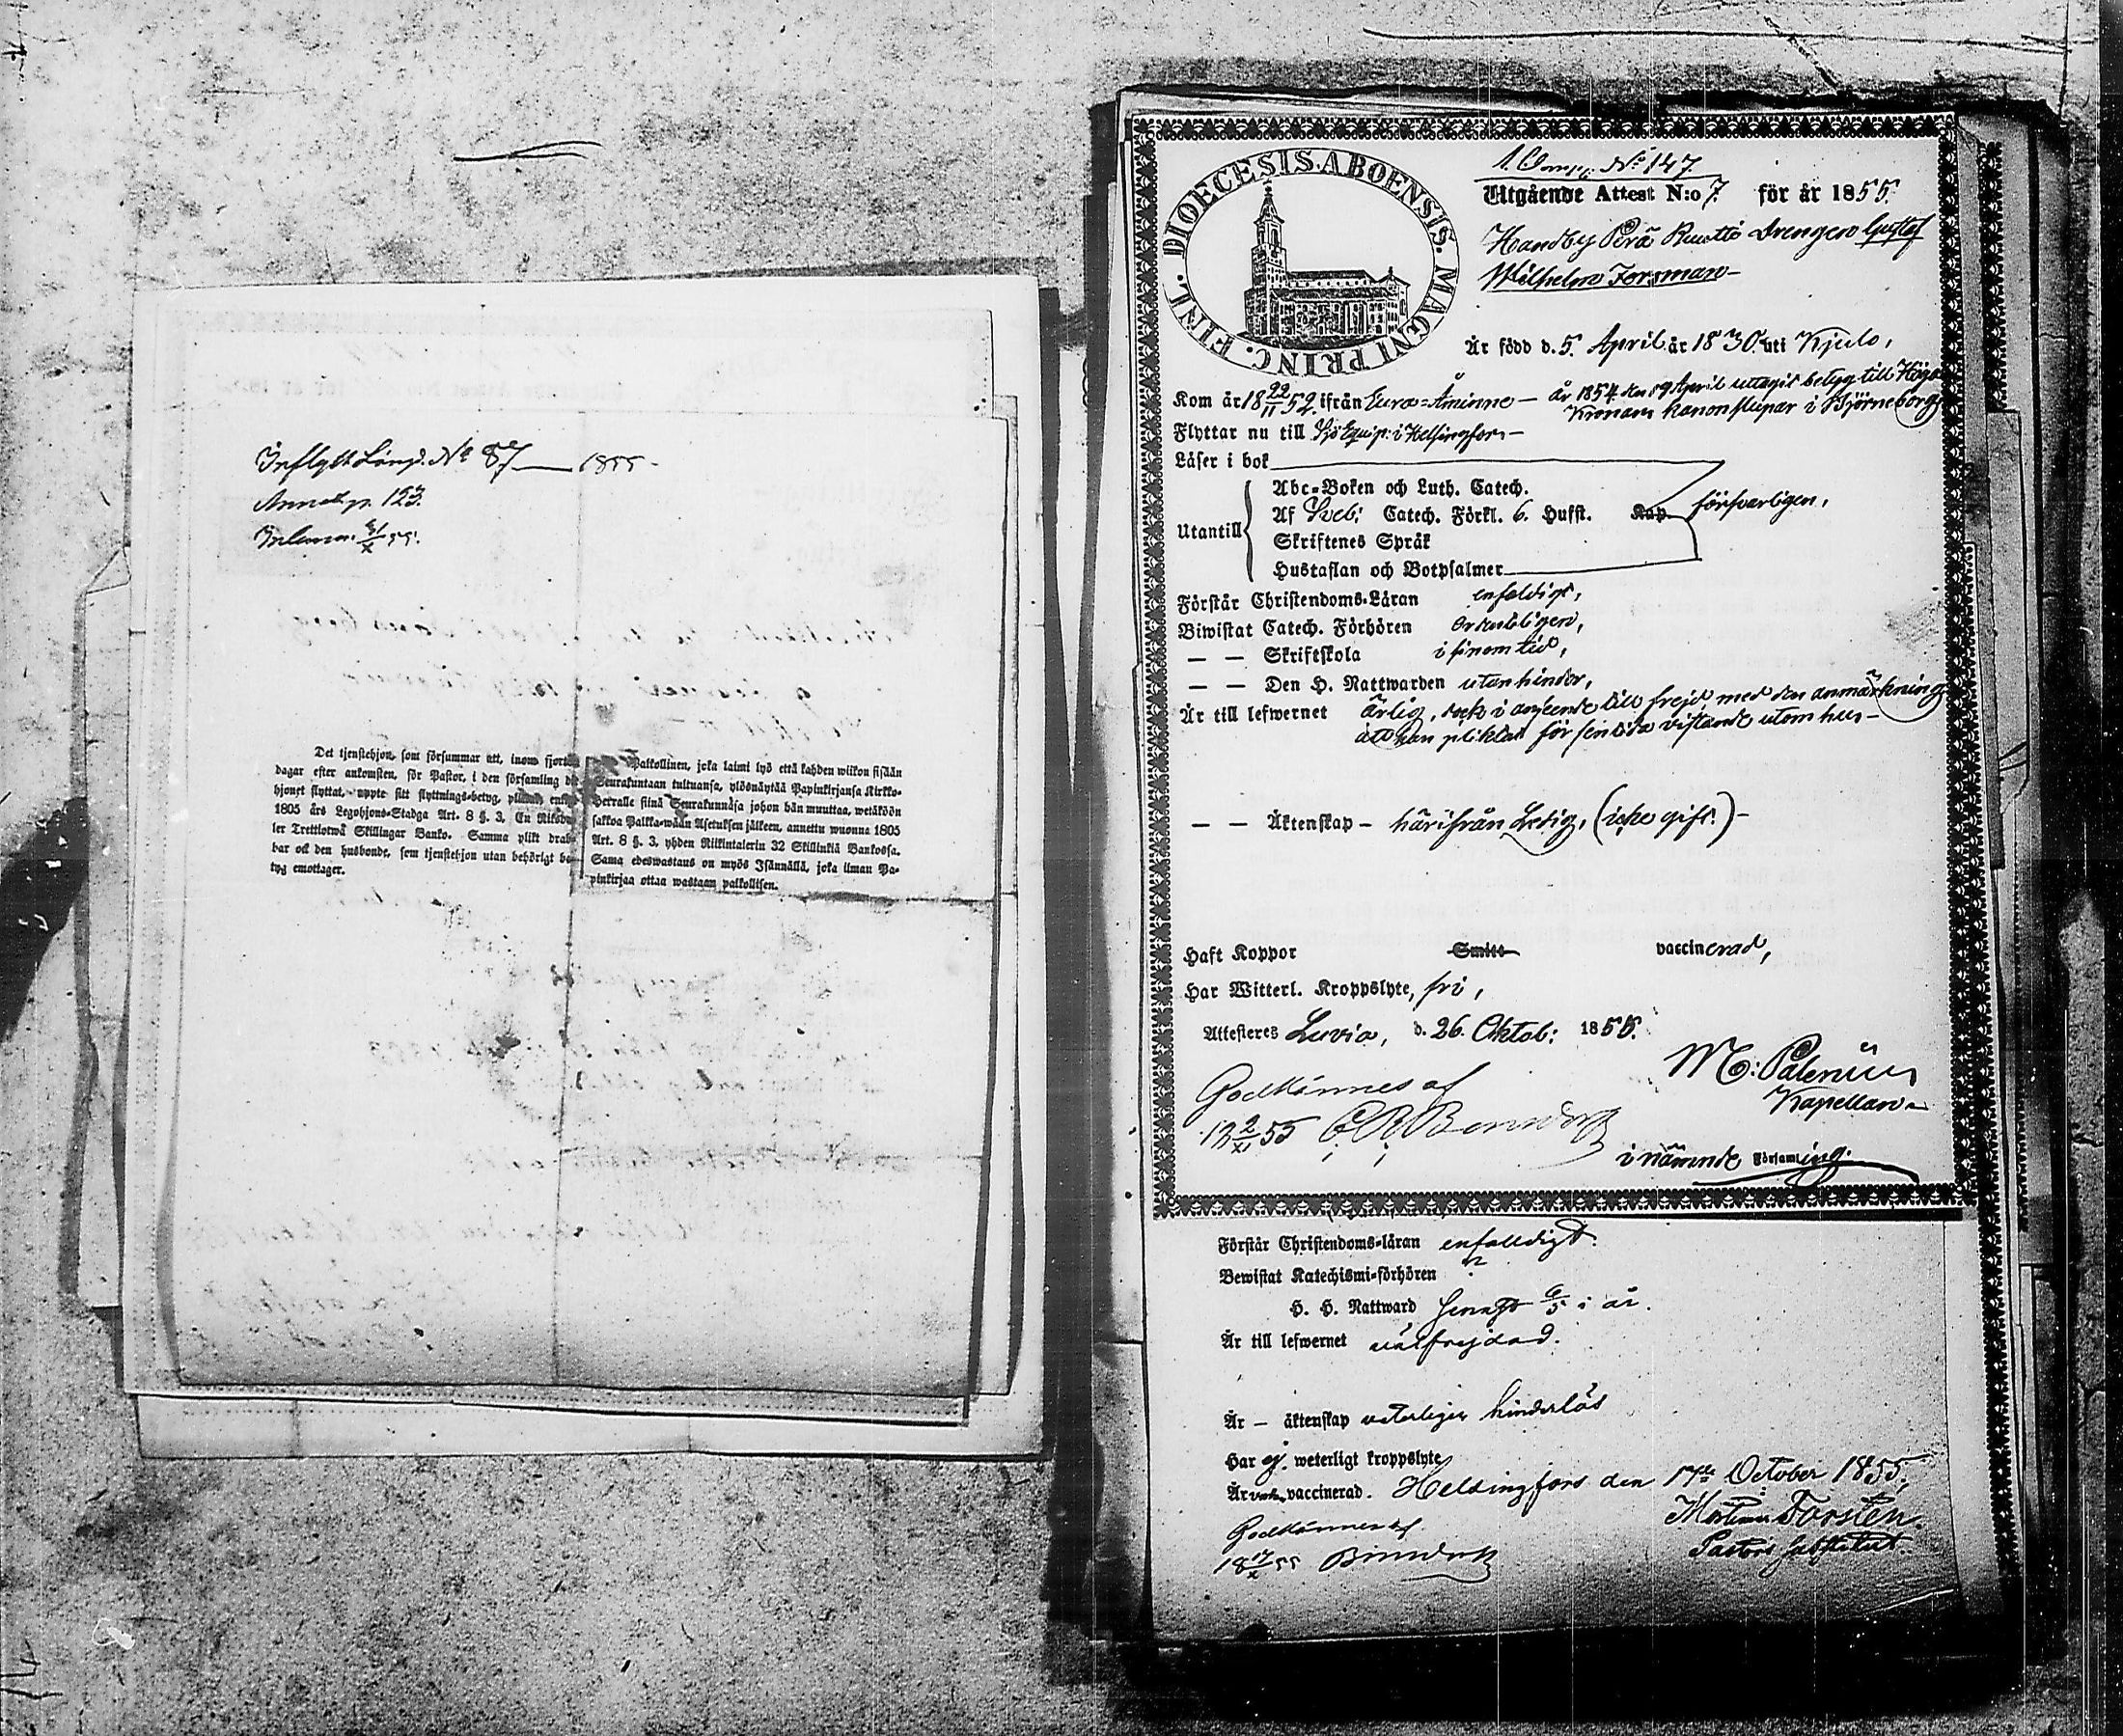 Inflytt Längd. No 87 — 1855.
Annot. p. 123.
31/X 55.
Det tjenstehjon, som försummar att, inom fjorton
dagar efter ankomsten, för Pastor, i den församling dit
hjonet flyttat, uppte sitt flyttnings-betyg, pliktar enligt
1805 års Legohjons-Stadga Art. 8 §. 3. En Riksda-
ler Trettiotwå Skillingar Banko. Samma plikt drab-
bar ock den husbonde, som tjenstehjon utan behörigt be-
tyg emottager.
Palkollinen, joka laimi lyö että kahden wiikon sisään
Seurakuntaan tultuansa, ylösnäytää Papinkirjansa Kirkko-
Herralle siinä Seurakunnasa johon hän muuttaa, wetäköön
sakkoa Palka-wäen Asetuksen jälkeen, annettu wuonna 1805
Art. 8 §. 3, yhden Riikintalerin 32 Skillinkiä Bankossa.
Sama edeswastaus on myös Isännällä, joka ilman Pa-
pinkirjaa ottaa wastaan palkollisen.
DIOECESIS. ABOENSIS. MAGNI PRINC. FINL.
1 Comp. No 147.
Utgående Attest N:o 7. för år 1855.
Handby Perä Ruotto Drengen Gustaf
Wilhelm Forsman
Är född d. 5. April år 1830. uti Kjulo,
Kom år 18 22/11 52. ifrån Eura-Åminne — år 1854 den 19 April uttagit betyg till Höga
Kronans kanonslupar i Björneborg
Flyttar nu till Sjö Equip: i Helsingfors —
Läser i bok
Abc-Boken och Luth. Catech.
Utantill Af Sveb: Catech. Förkl. 6. Hufst. Kap försvarligen,
Skriftenes Språk
Hustaflan och Botpsalmer
Förstår Christendoms-Läran enfaldigt,
Biwistat Catech. Förhören ordentligen,
— — Skriftskola i sinom tid,
— — Den H. Nattwarden utan hinder,
Är till lefwernet ärlig, och i anseende till frejd, med den anmärkning
att han pliktat för sin sida vistande utom hus —
— — Äktenskap — härifrån Ledig, (icke gift.) —
Haft Koppor Smitt vaccinerad,
Har Witterl. Kroppslyte, fri,
Attesteres Luvia, d. 26. Oktob: 1855.
M: Palenius
Kapellan
i nämnde Församling.
Godkännes af
18 2/XI 55
Förstår Christendoms-läran enfalldigt.
Bewistat Katechismi-förhören
H. H. Nattward senast 6/5 i år.
Är till lefwernet välfrejdad.
Är — äktenskap veterligen hinderlös
Har ej weterligt kroppslyte
Är vaccinerad. Helsingfors den 17de October 1855.
Forstén.
Pastors Substitut.
Godkännes af
18 17/X 55